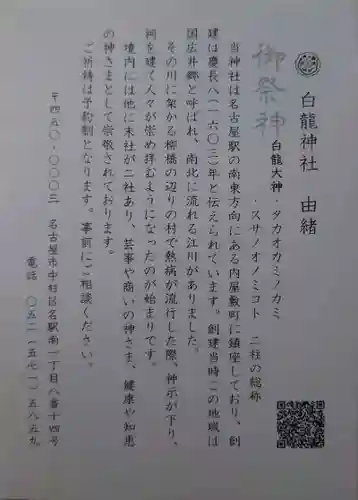 白龍神社 由緒
御祭神
白龍大神・タカオカミノカミ
・スサノオノミコト 二柱の総称
当神社は名古屋駅の南東方向にある内屋敷町に鎮座しており、創
建は慶長八(一六〇三)年と伝えられています。創建当時この地域は
国広井郷と呼ばれ、南北に流れる江川がありました。
その川に架かる柳橋の辺りの村で熱病が流行した際、神示が下り、
祠を建て人々が崇め拝むようになったのが始まりです。
境内には他に末社が二社あり、芸事や商いの神さま、健康や知恵
の神さまとして崇敬されております。
ご祈祷は予約制となります。事前にご相談ください。
〒四五〇-〇〇〇三 名古屋市中村区名駅南一丁目八番十四号
電話 〇五二(五七一)五八五九